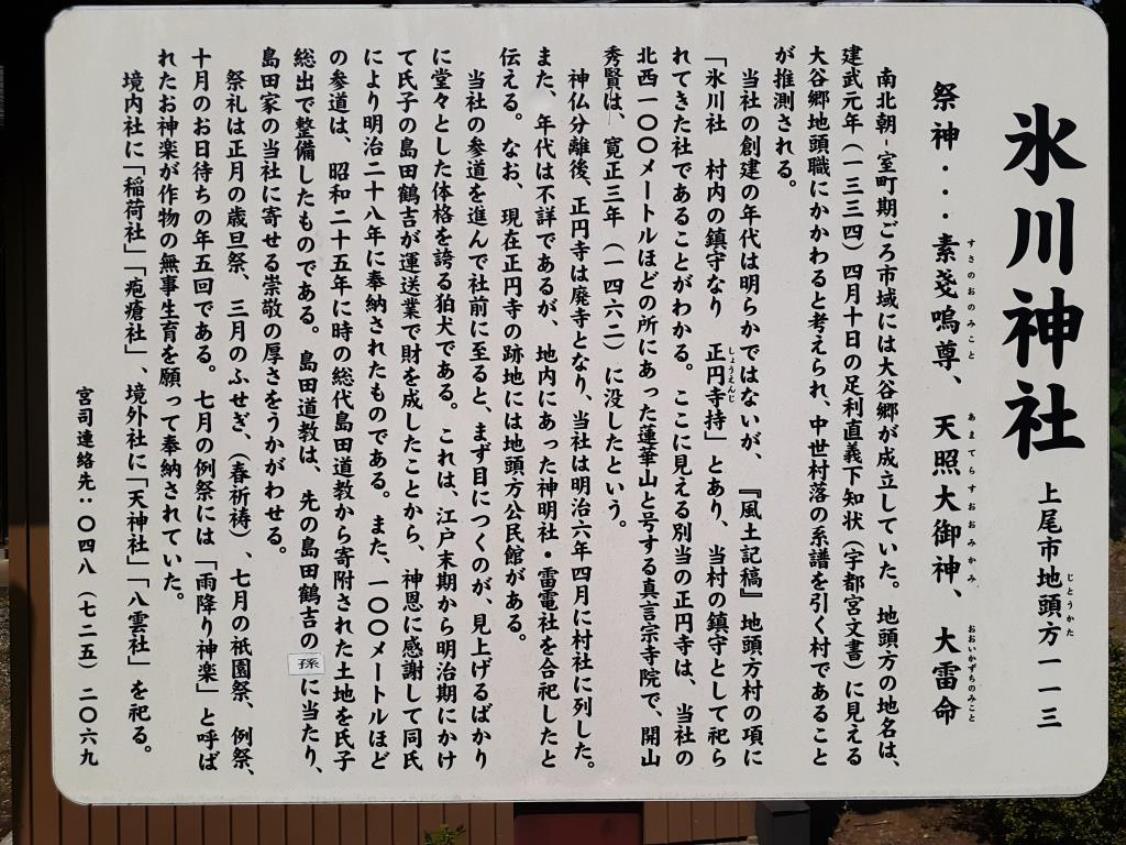 氷川神社
上尾市地頭方一一三
じとうかた
祭神・・・素戔嗚尊、天照大御神、大雷命
すさのおのみこと
あまてらすおおみかみ
おおいかずちのみこと
南北朝-室町期ごろ市域には大谷郷が成立していた。地頭方の地名は、
建武元年（一三三四）四月十日の足利直義下知状（宇都宮文書）に見える
大谷郷地頭職にかかわると考えられ、中世村落の系譜を引く村であること
が推測される。
当社の創建の年代は明らかではないが、『風土記稿』地頭方村の項に
「氷川社　村内の鎮守なり　正円寺持」とあり、当村の鎮守として祀ら
しょうえんじ
れてきた社であることがわかる。ここに見える別当の正円寺は、当社の
北西一〇〇メートルほどの所にあった蓮華山と号する真言宗寺院で、開山
秀賢は、寛正三年（一四六二）に没したという。
神仏分離後、正円寺は廃寺となり、当社は明治六年四月に村社に列した。
また、年代は不詳であるが、地内にあった神明社・雷電社を合祀したと
伝える。なお、現在正円寺の跡地には地頭方公民館がある。
当社の参道を進んで社前に至ると、まず目につくのが、見上げるばかり
に堂々とした体格を誇る狛犬である。これは、江戸末期から明治期にかけ
て氏子の島田鶴吉が運送業で財を成したことから、神恩に感謝して同氏
により明治二十八年に奉納されたものである。また、一〇〇メートルほど
の参道は、昭和二十五年に時の総代島田道教から寄附された土地を氏子
総出で整備したものである。島田道教は、先の島田鶴吉の孫に当たり、
島田家の当社に寄せる崇敬の厚さをうかがわせる。
祭礼は正月の歳旦祭、三月のふせぎ、（春祈祷）、七月の祇園祭、例祭、
十月のお日待ちの年五回である。七月の例祭には「雨降り神楽」と呼ば
れたお神楽が作物の無事生育を願って奉納されていた。
境内社に「稲荷社」「疱瘡社」、境外社に「天神社」「八雲社」を祀る。
宮司連絡先：〇四八（七二五）二〇六九